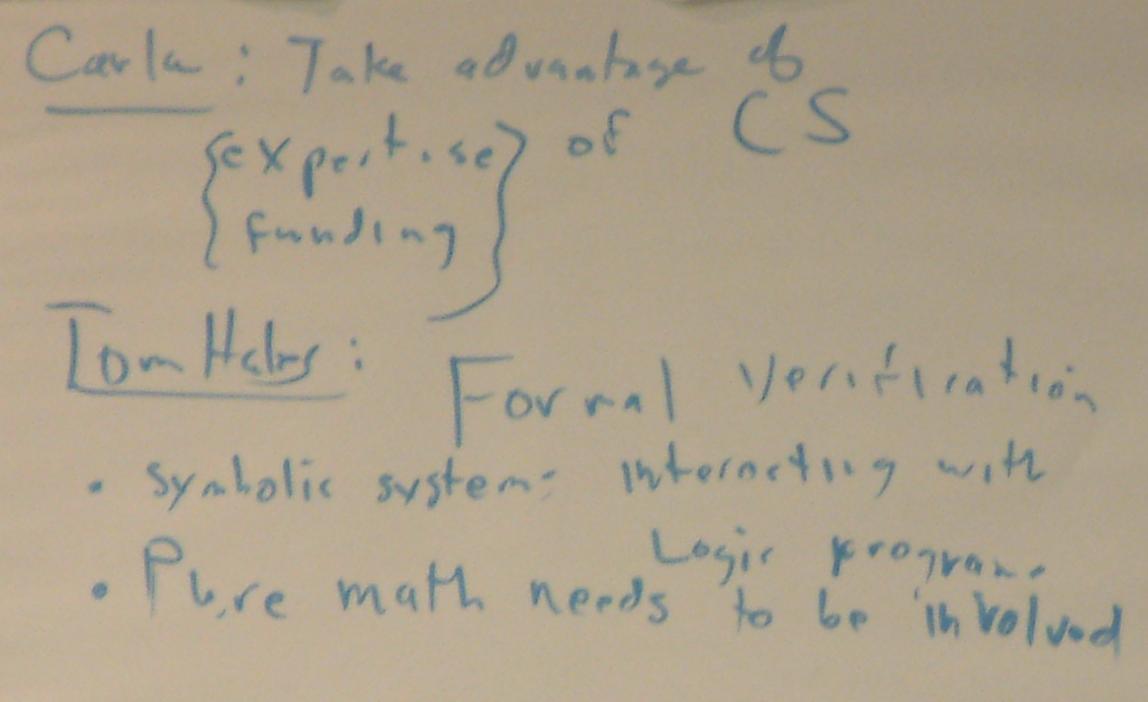 Carla: Take advantage of
{expertise} of CS
{funding}
Tom Hales: Formal Verification
• symbolic systems interacting with
Logic programs
• Pure math needs to be involved